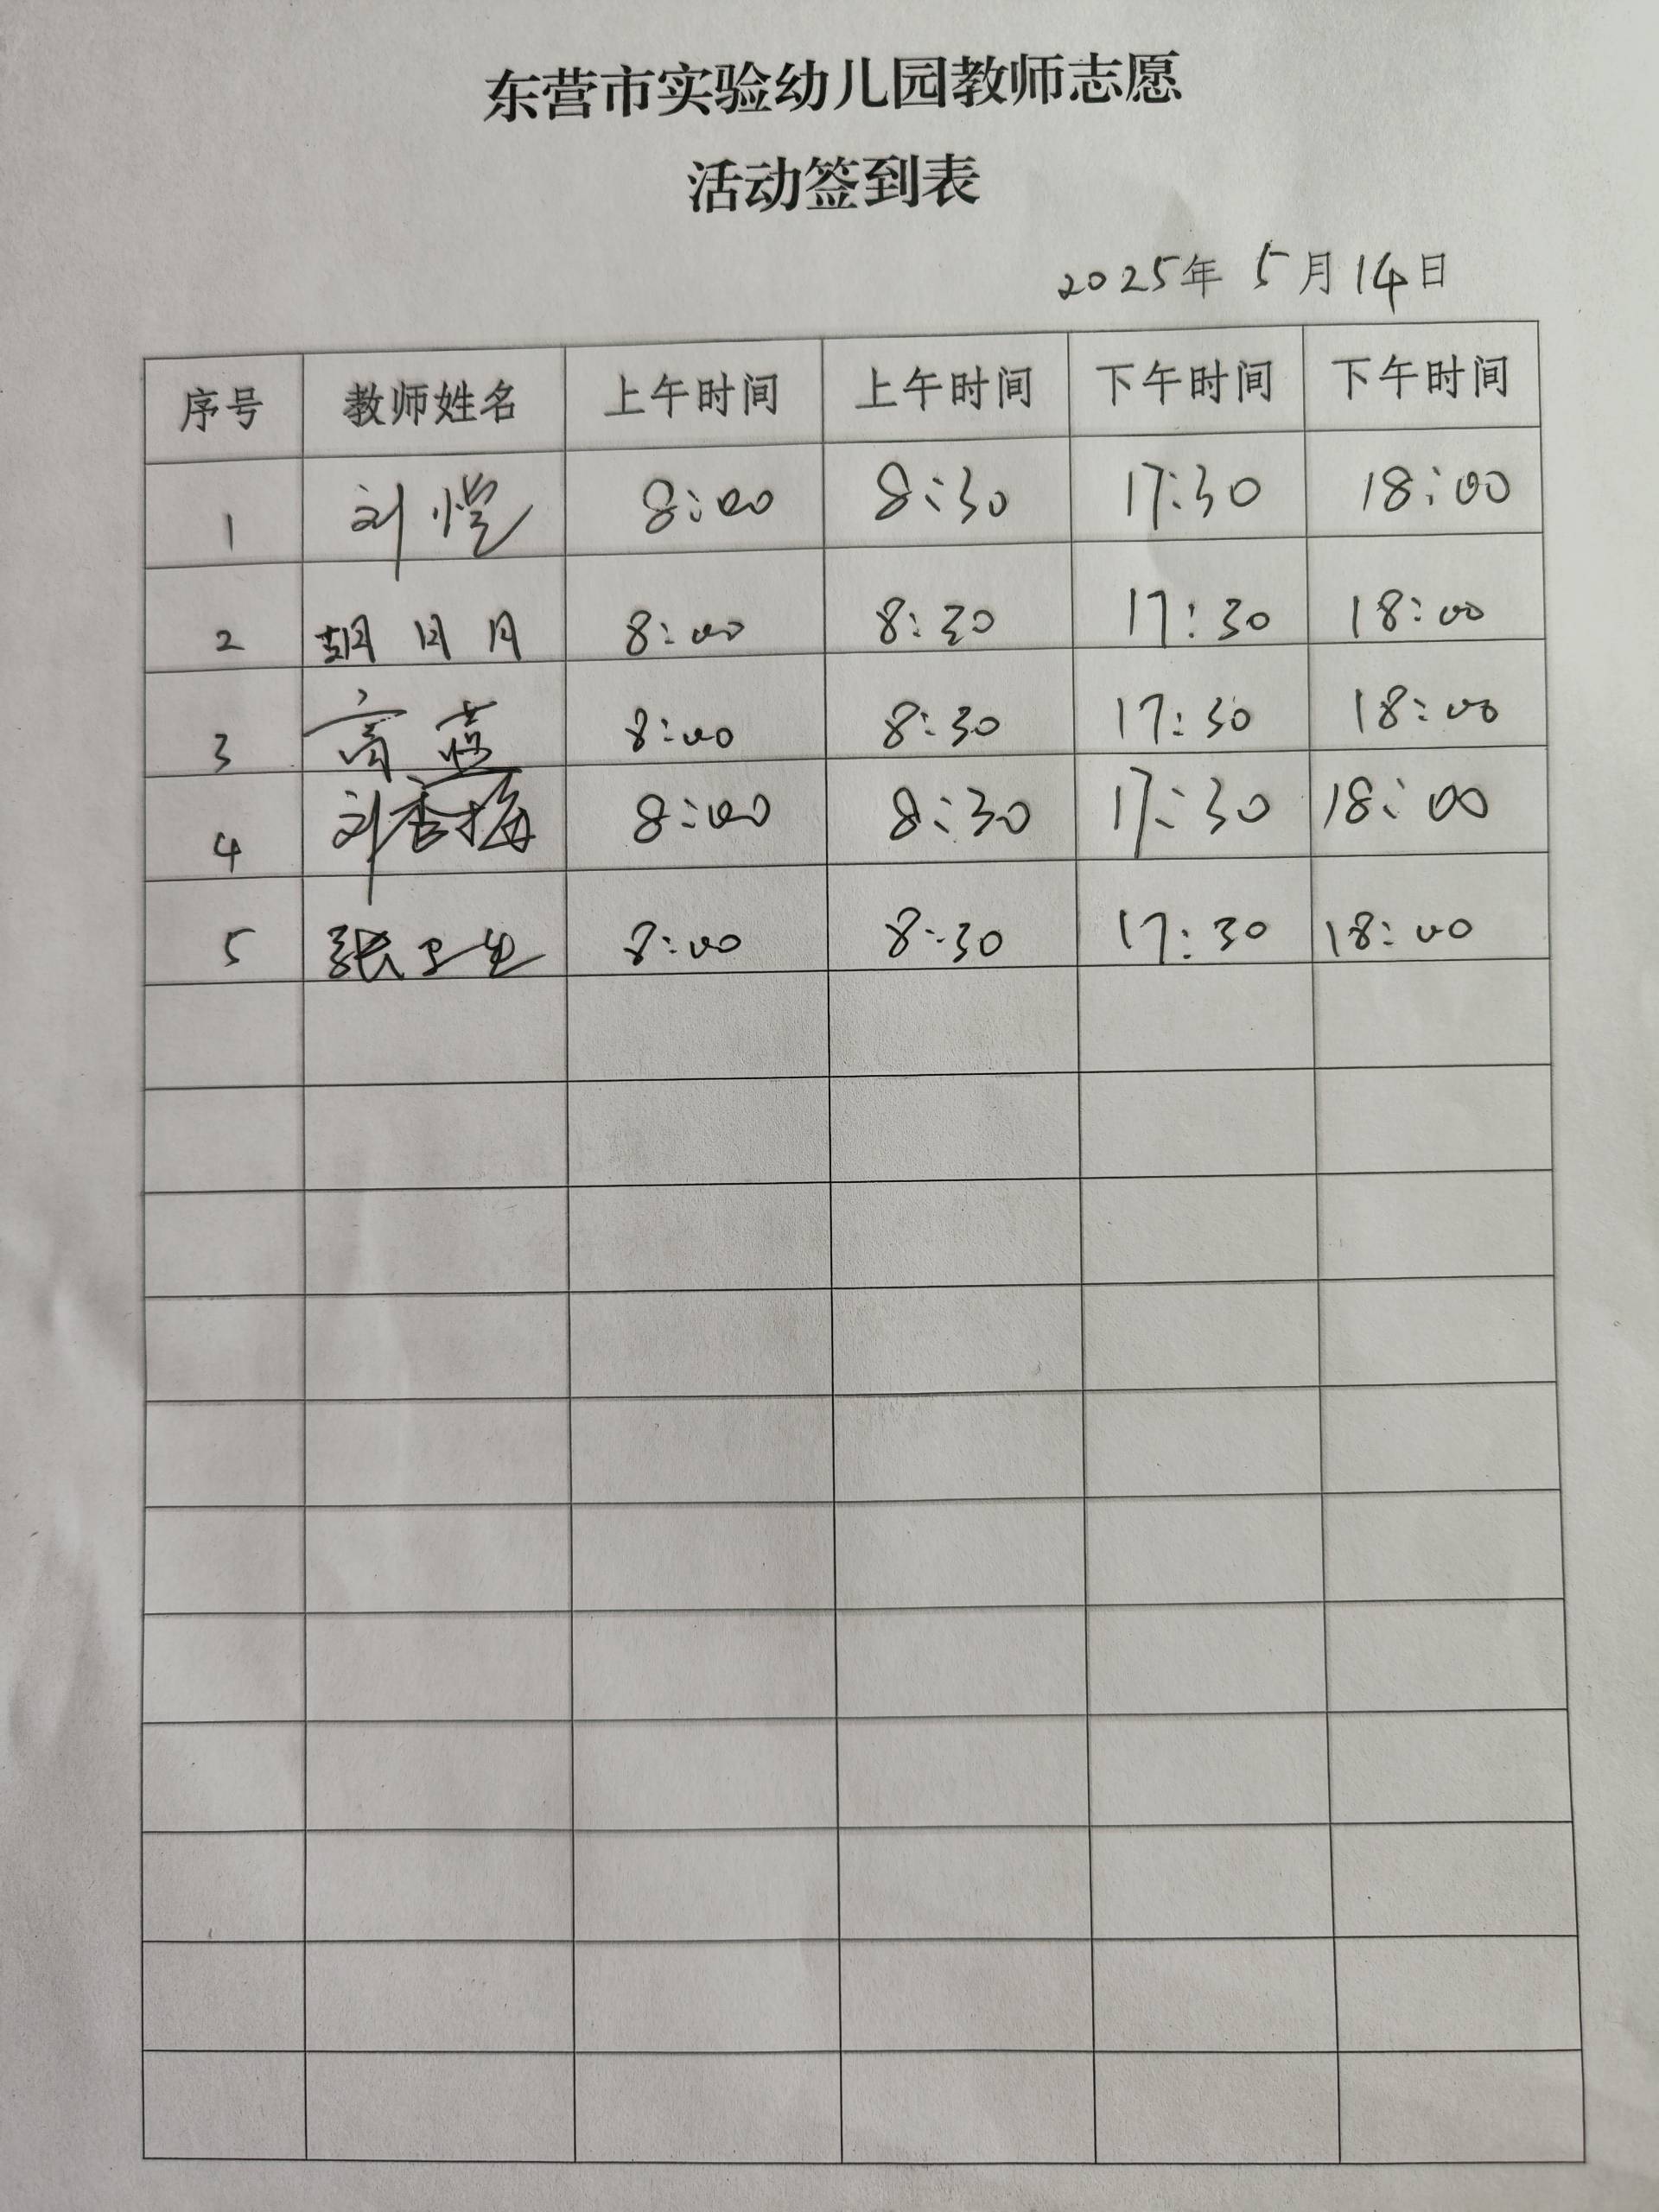 东营市实验幼儿园教师志愿
活动签到表
2025年 5月14日
序号 教师姓名 上午时间 上午时间 下午时间 下午时间
1 刘恺 8:00 8:30 17:30 18:00
2 胡月月 8:00 8:30 17:30 18:00
3 高蕊 8:00 8:30 17:30 18:00
4 刘香梅 8:00 8:30 17:30 18:00
5 张卫生 8:00 8:30 17:30 18:00